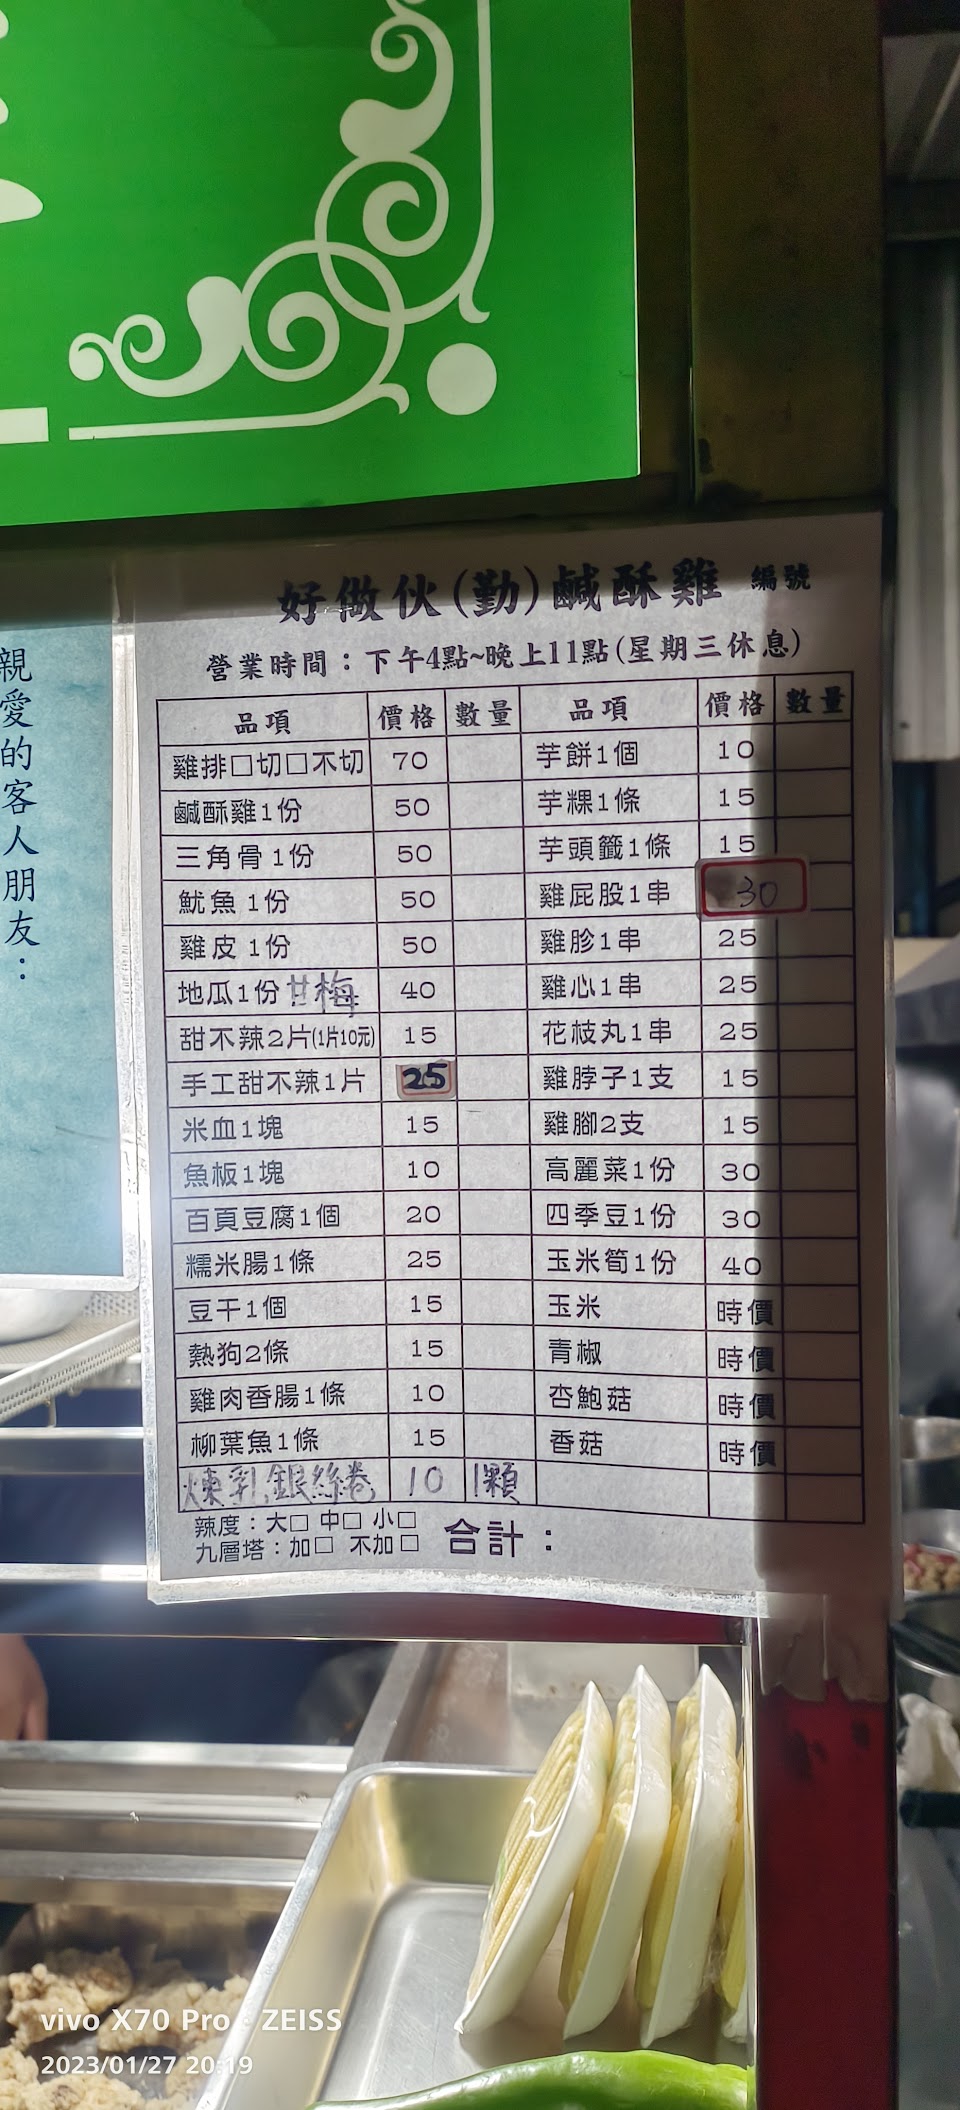 親愛的客人朋友：
好做伙(勤)鹹酥雞 編號
營業時間：下午4點~晚上11點(星期三休息)
品項 價格 數量 品項 價格 數量
雞排□切□不切 70 芋餅1個 10
鹹酥雞1份 50 芋粿1條 15
三角骨1份 50 芋頭籤1條 15
魷魚1份 50 雞屁股1串 30
雞皮1份 50 雞胗1串 25
地瓜1份甘梅 40 雞心1串 25
甜不辣2片(1片10元) 15 花枝丸1串 25
手工甜不辣1片 25 雞脖子1支 15
米血1塊 15 雞腳2支 15
魚板1塊 10 高麗菜1份 30
百頁豆腐1個 20 四季豆1份 30
糯米腸1條 25 玉米筍1份 40
豆干1個 15 玉米 時價
熱狗2條 15 青椒 時價
雞肉香腸1條 10 杏鮑菇 時價
柳葉魚1條 15 香菇 時價
煉乳銀絲卷 10 1顆
辣度：大□ 中□ 小□
九層塔：加□ 不加□ 合計：
vivo X70 Pro · ZEISS
2023/01/27 20:19